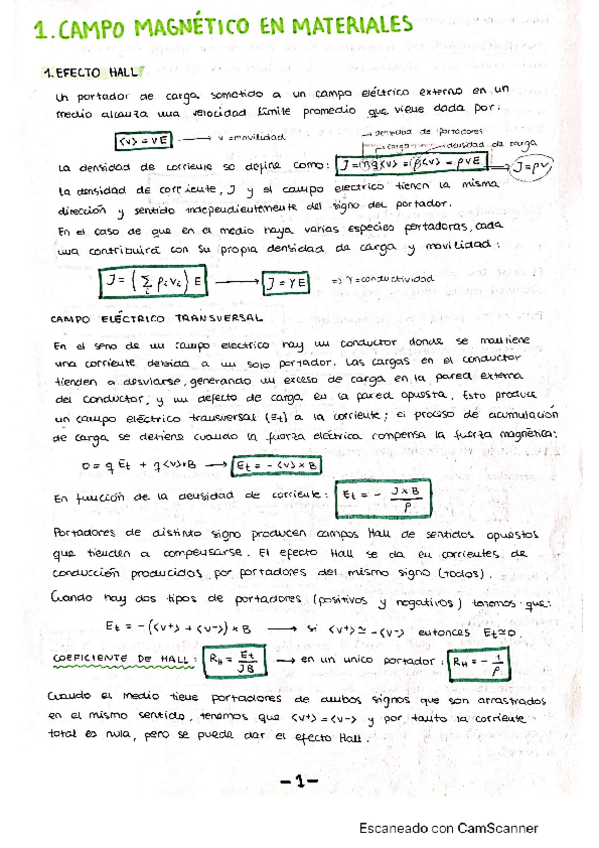 1. CAMPO MAGNÉTICO EN MATERIALES
1. EFECTO HALL
Un portador de carga sometido a un campo eléctrico externo en un
medio alcanza una velocidad límite promedio que viene dada por:
<v> = νE → ν = movilidad
densidad de portadores
carga
densidad de carga
La densidad de corriente se define como: J = nq<v> = ρ<v> = ρνE → J = ρν
La densidad de corriente, J y el campo electrico tienen la misma
dirección y sentido independientemente del signo del portador.
En el caso de que en el medio haya varias especies portadoras, cada
una contribuirá con su propia densidad de carga y movilidad:
J = (∑ ρᵢνᵢ) E → J = γE => γ = conductividad
i
CAMPO ELÉCTRICO TRANSVERSAL
En el seno de un campo electrico hay un conductor donde se mantiene
una corriente debida a un solo portador. Las cargas en el conductor
tienden a desviarse, generando un exceso de carga en la pared externa
del conductor, y un defecto de carga en la pared opuesta. Esto produce
un campo eléctrico transversal (Et) a la corriente; el proceso de acumulación
de carga se detiene cuando la fuerza eléctrica compensa la fuerza magnética:
0 = q Et + q<v>xB → Et = - <v> x B
En función de la densidad de corriente: Et = - J x B / ρ
Portadores de distinto signo producen campos Hall de sentidos opuestos
que tienden a compensarse. El efecto Hall se da en corrientes de
conducción producidas por portadores del mismo signo (todos).
Cuando hay dos tipos de portadores (positivos y negativos) tenemos que:
Et = - (<v+> + <v->) x B → si <v+> ≃ - <v-> entonces Et ≃ 0.
COEFICIENTE DE HALL: RH = Et / JB → en un unico portador: RH = - 1 / ρ
Cuando el medio tiene portadores de ambos signos que son arrastrados
en el mismo sentido, tenemos que <v+> = <v-> y por tanto la corriente
total es nula, pero se puede dar el efecto Hall.
- 1 -
Escaneado con CamScanner